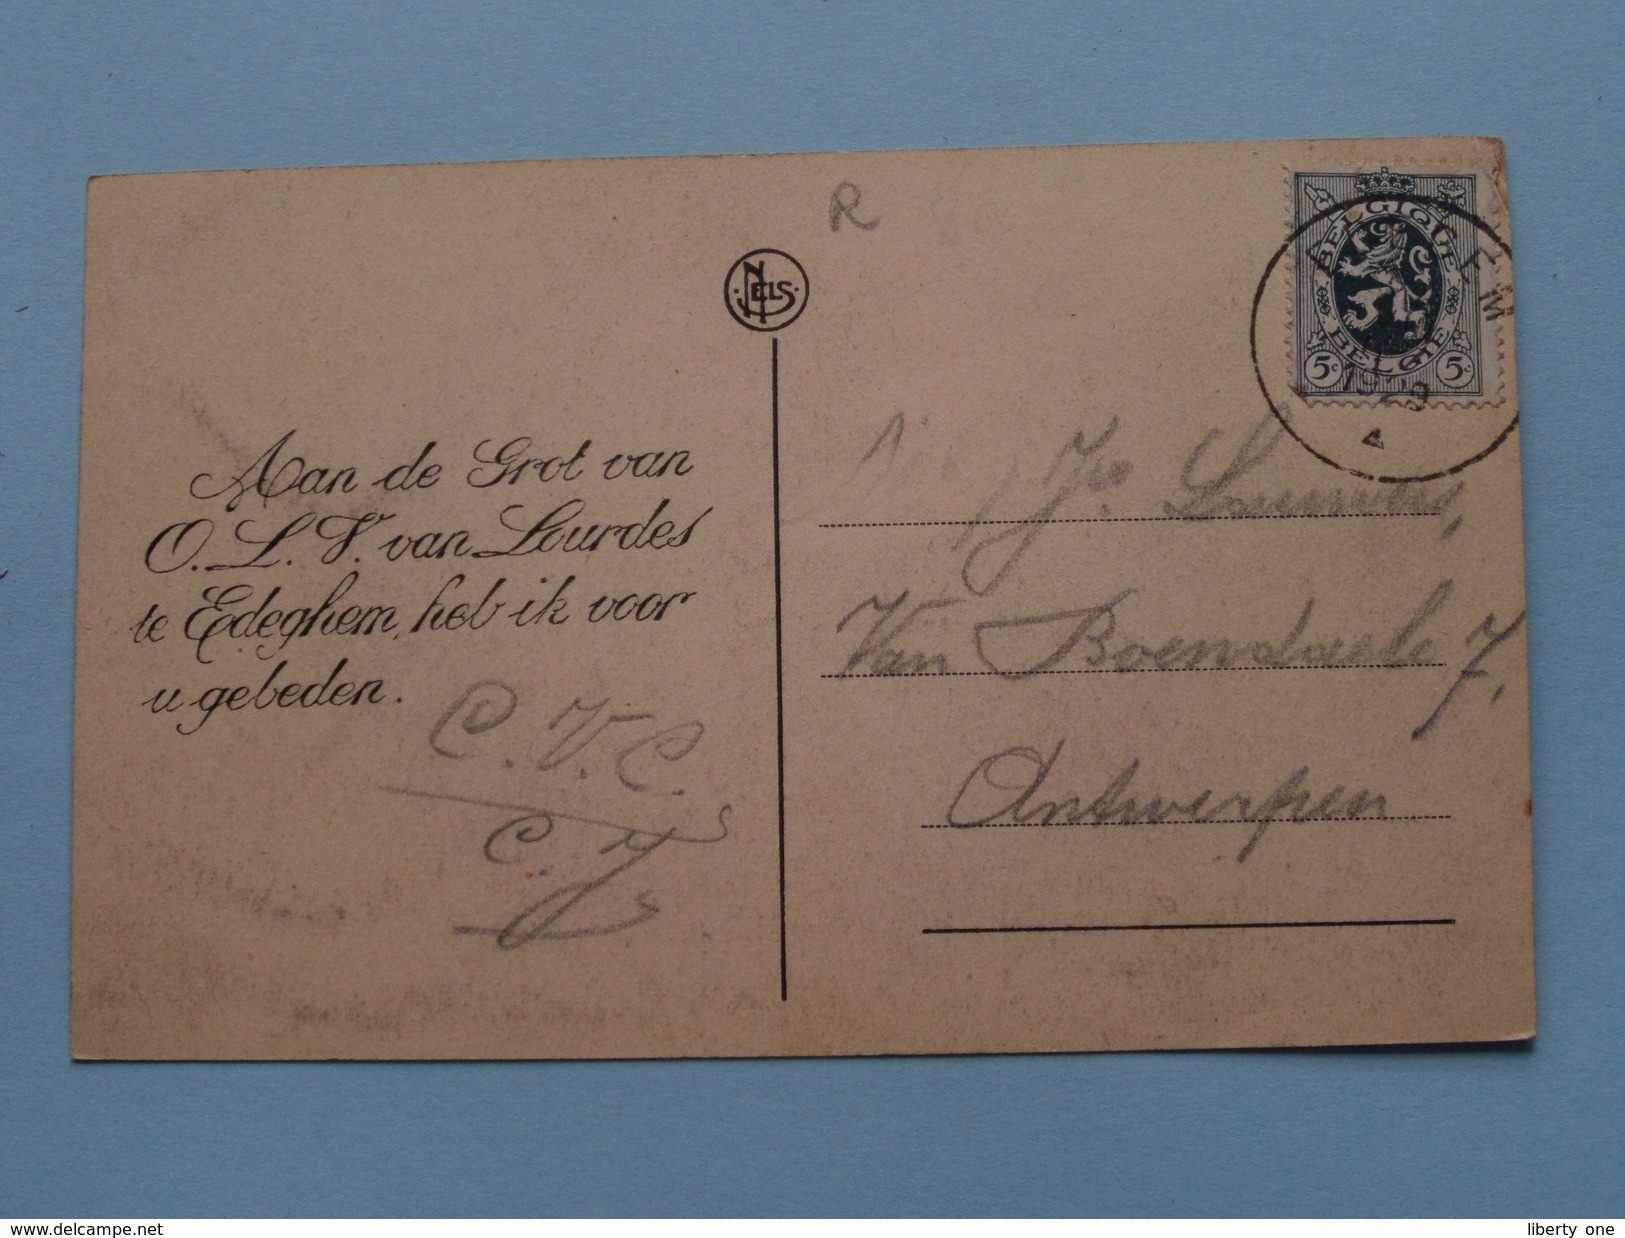 R
NELS
BELGIQUE
BELGIË
5c 5c
1929
Aan de Grot van
O. L. V. van Lourdes
te Edeghem, heb ik voor
u gebeden.
C. V. C.
C. J.
Van Boendaele 7,
Antwerpen
www.delcampe.net
liberty_one